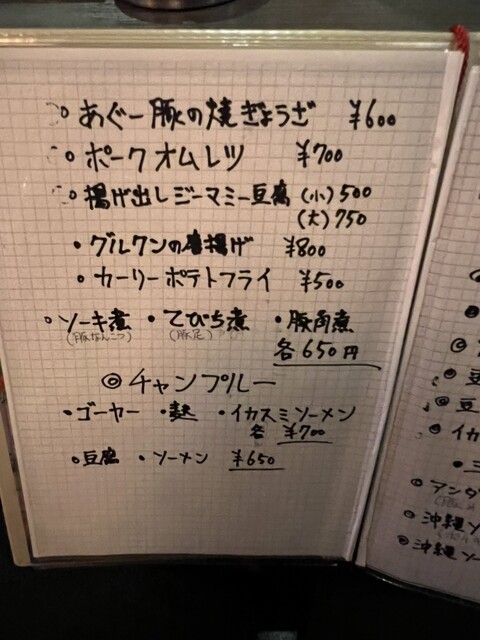 ・あぐー豚の焼ぎょうざ ¥600
・ポークオムレツ ¥700
・揚げ出しジーマミー豆腐 (小)500
(大)750
・グルクンの唐揚げ ¥800
・カーリーポテトフライ ¥500
・ソーキ煮 ・てびち煮 ・豚角煮
(豚なんこつ) (豚足)
各650円
◎チャンプルー
・ゴーヤー ・麩 ・イカスミソーメン
各 ¥700
・豆腐 ・ソーメン ¥650
豆
イカ
アンダ
沖縄ソ
沖縄ソ